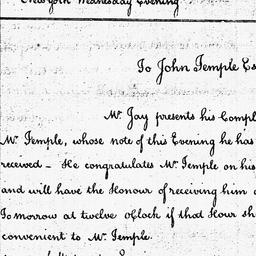 New York Wednesday Evening
To John Temple Es
Mr. Jay presents his Compl
Mr. Temple, whose note of this Evening he has
received – He congratulates Mr. Temple on his
and will have the Honour of receiving him
Tomorrow at twelve oClock if that Hour sh
convenient to Mr. Temple.